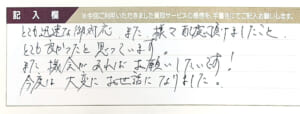 記入欄
※今回ご利用いただきました買取サービスの感想を、手書きにてご記入お願いします。
とても迅速な御対応、また、様々配慮頂けましたこと、
とても良かったと思っています。
また機会があればお願いしたいです!
今度は大変にお世話になりました。